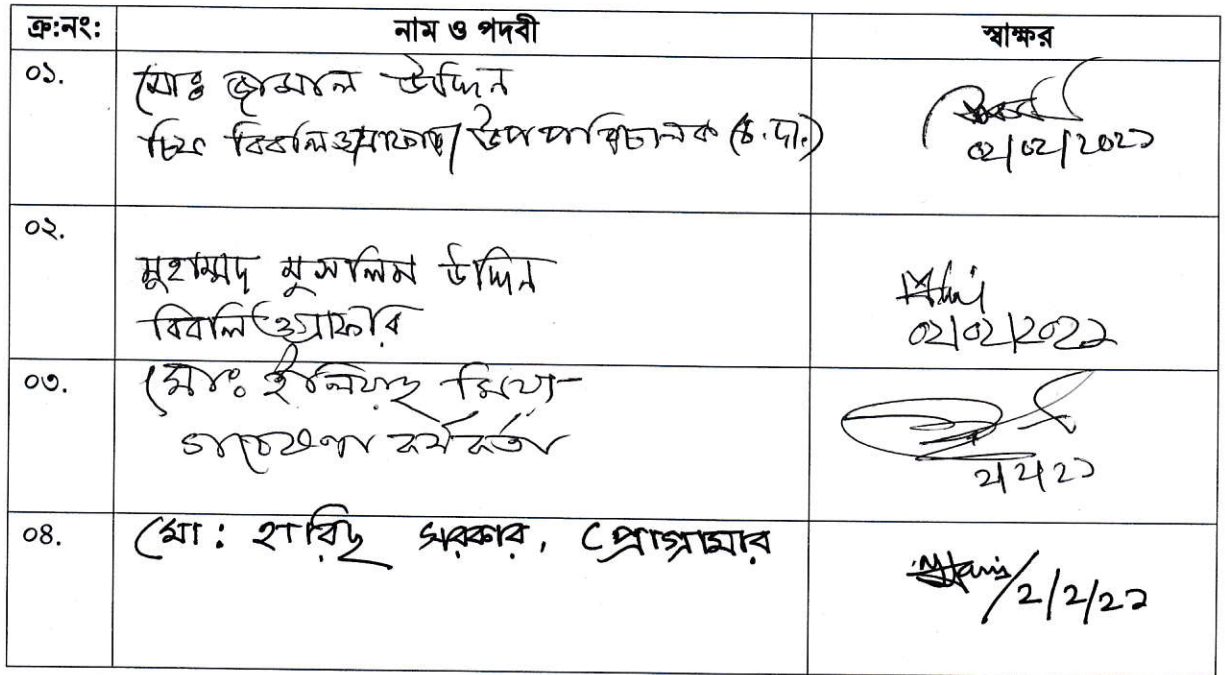 ক্র:নং: নাম ও পদবী স্বাক্ষর
০১. মোঃ জামাল উদ্দিন
চিফ বিবলিওগ্রাফার/উপপরিচালক (চ.দা.)
02/02/2022
০২.
মুহাম্মদ মুসলিম উদ্দিন
বিবলিওগ্রাফার
02/02/2022
০৩. মোঃ ইলিয়াছ মিয়া
গবেষণা কর্মকর্তা
2/2/22
০৪. মো: হারিছ সরকার, প্রোগ্রামার
2/2/22